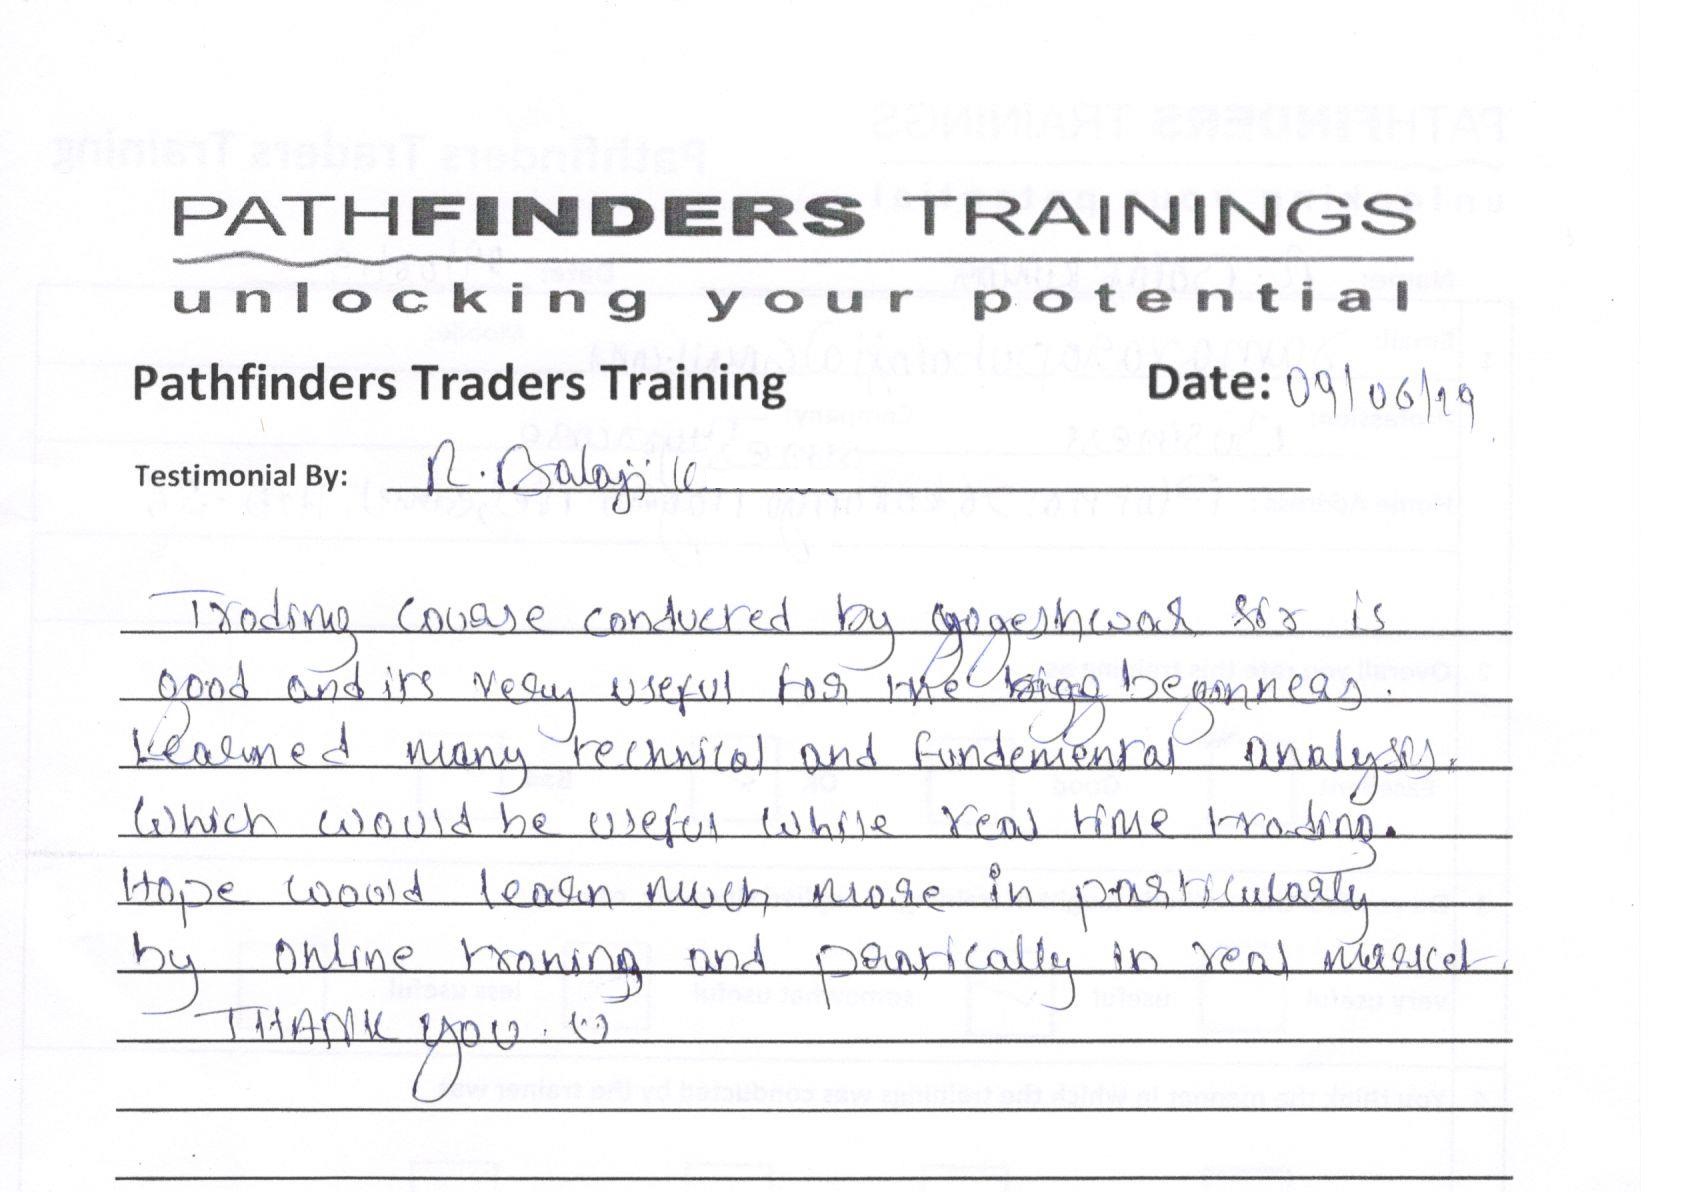 PATHFINDERS TRAININGS
unlocking your potential
Pathfinders Traders Training Date: 09/06/19
Testimonial By: R. Balaji
Trading course conducted by yogeshwar sir is
good and its very useful for the beginners.
Learned many technical and fundemental analysis.
Which would be useful while real time trading.
Hope would learn much more in particularly
by online traning and practically in real market.
THANK YOU. :)